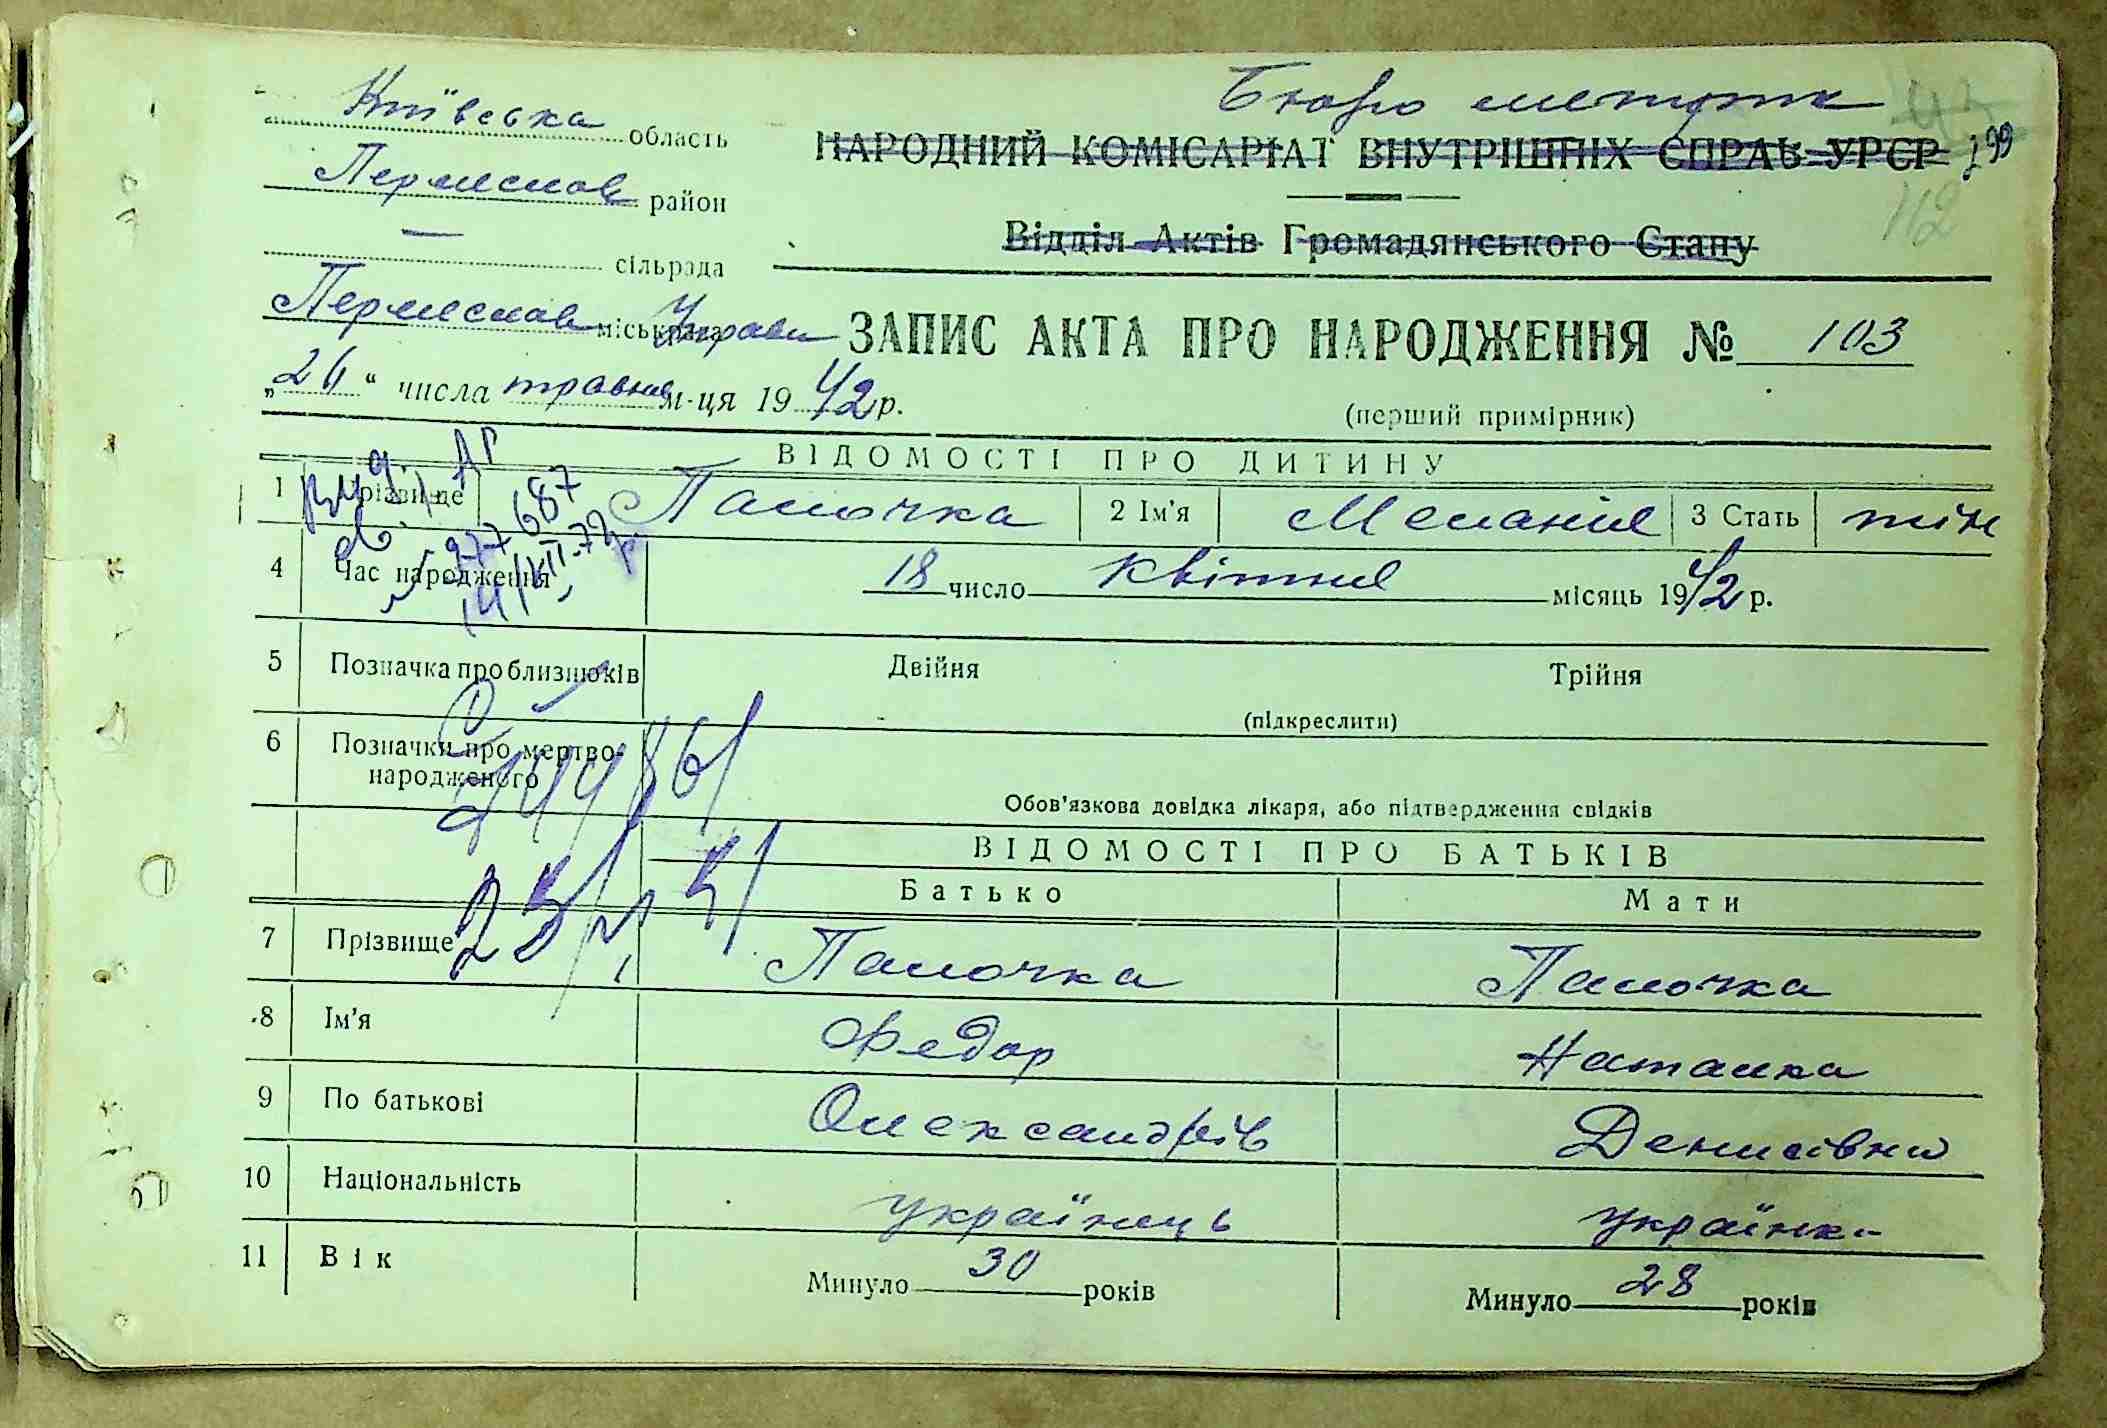 Київська область
Бюро метрик
НАРОДНИЙ КОМІСАРІАТ ВНУТРІШНІХ СПРАВ УРСР
199
Переяслав район
112
Відділ Актів Громадянського Стану
— сільрада
Переяслав міськрада Управи
ЗАПИС АКТА ПРО НАРОДЖЕННЯ № 103
„26“ числа травня м-ця 1942 р.
(перший примірник)
ВІДОМОСТІ ПРО ДИТИНУ
1 Прізвище Палочка 2 Ім'я Меланія 3 Стать жін
977687
14/XII-72р.
4 Час народження 18 число Квітня місяць 1942 р.
5 Позначка про близнюків Двійня Трійня
(підкреслити)
6 Позначки про мертво-
народженого
Обов'язкова довідка лікаря, або підтвердження свідків
ВІДОМОСТІ ПРО БАТЬКІВ
Батько Мати
7 Прізвище Палочка Палочка
8 Ім'я Федор Наталка
9 По батькові Олександрів Денисівна
10 Національність українець українка
11 Вік Минуло 30 років Минуло 28 років